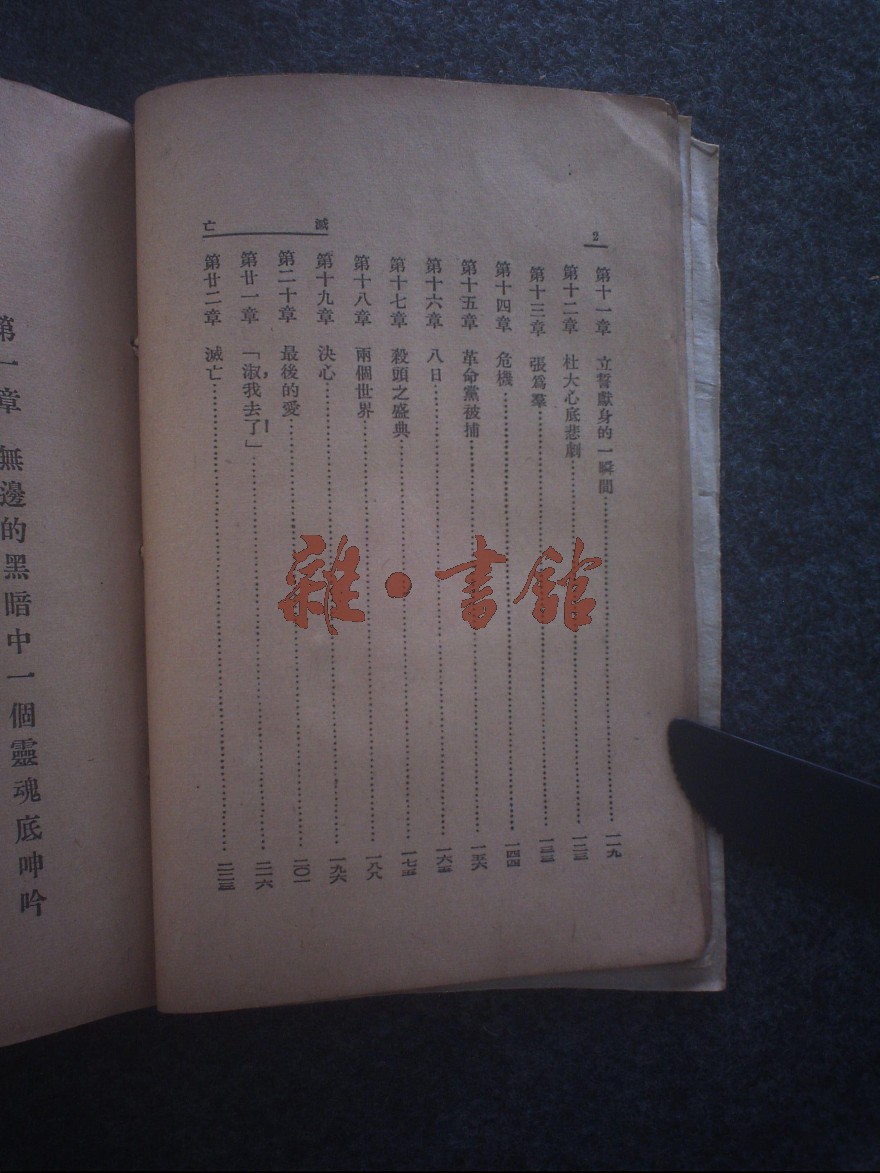 2
滅亡
第十一章 立誓獻身的一瞬間…………一一九
第十二章 杜大心底悲劇…………一二三
第十三章 張爲羣…………一三三
第十四章 危機…………一四四
第十五章 革命黨被捕…………一五六
第十六章 八日…………一六五
第十七章 殺頭之盛典…………一七五
第十八章 兩個世界…………一八八
第十九章 決心…………一九六
第二十章 最後的愛…………二〇一
第廿一章 「淑，我去了！」…………二一六
第廿二章 滅亡…………二二三
第一章 無邊的黑暗中一個靈魂底呻吟
雜·書館